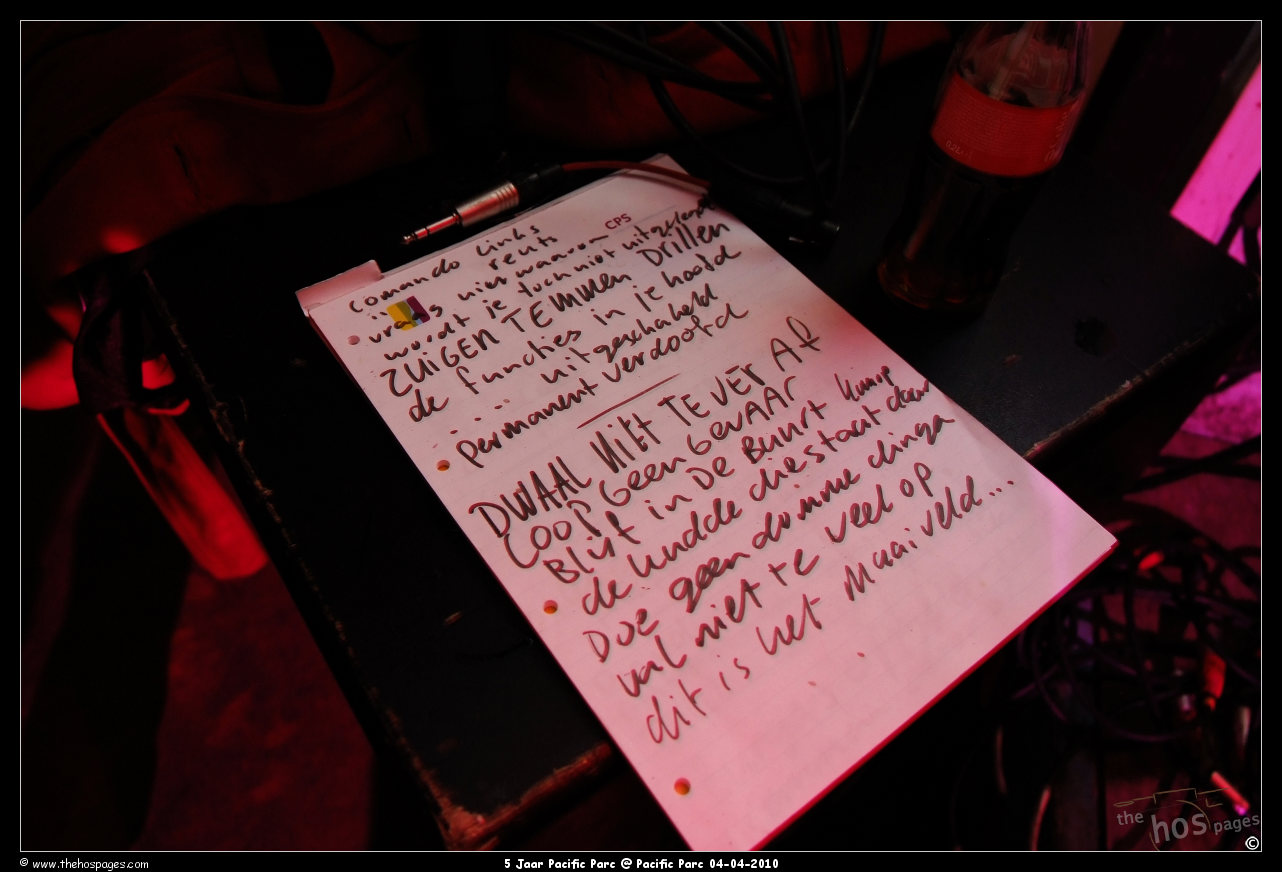 CPS
Comando Links
rents
vraag niet waarom
wordt je toch niet uitgelegd
ZUIGEN TEMMEN DRILLEN
de functies in je hoofd
.... uitgeschakeld
permanent verdoofd
DWAAL NIET TE VER AF
LOOP Geen GEVAAR
BLijf in De Buurt kruip
de kudde die staat daar
DOE geen domme dinga
val niet te veel op
dit is het Maaiveld...
0,2L
the hos pages
©
© www.thehospages.com
5 Jaar Pacific Parc @ Pacific Parc 04-04-2010